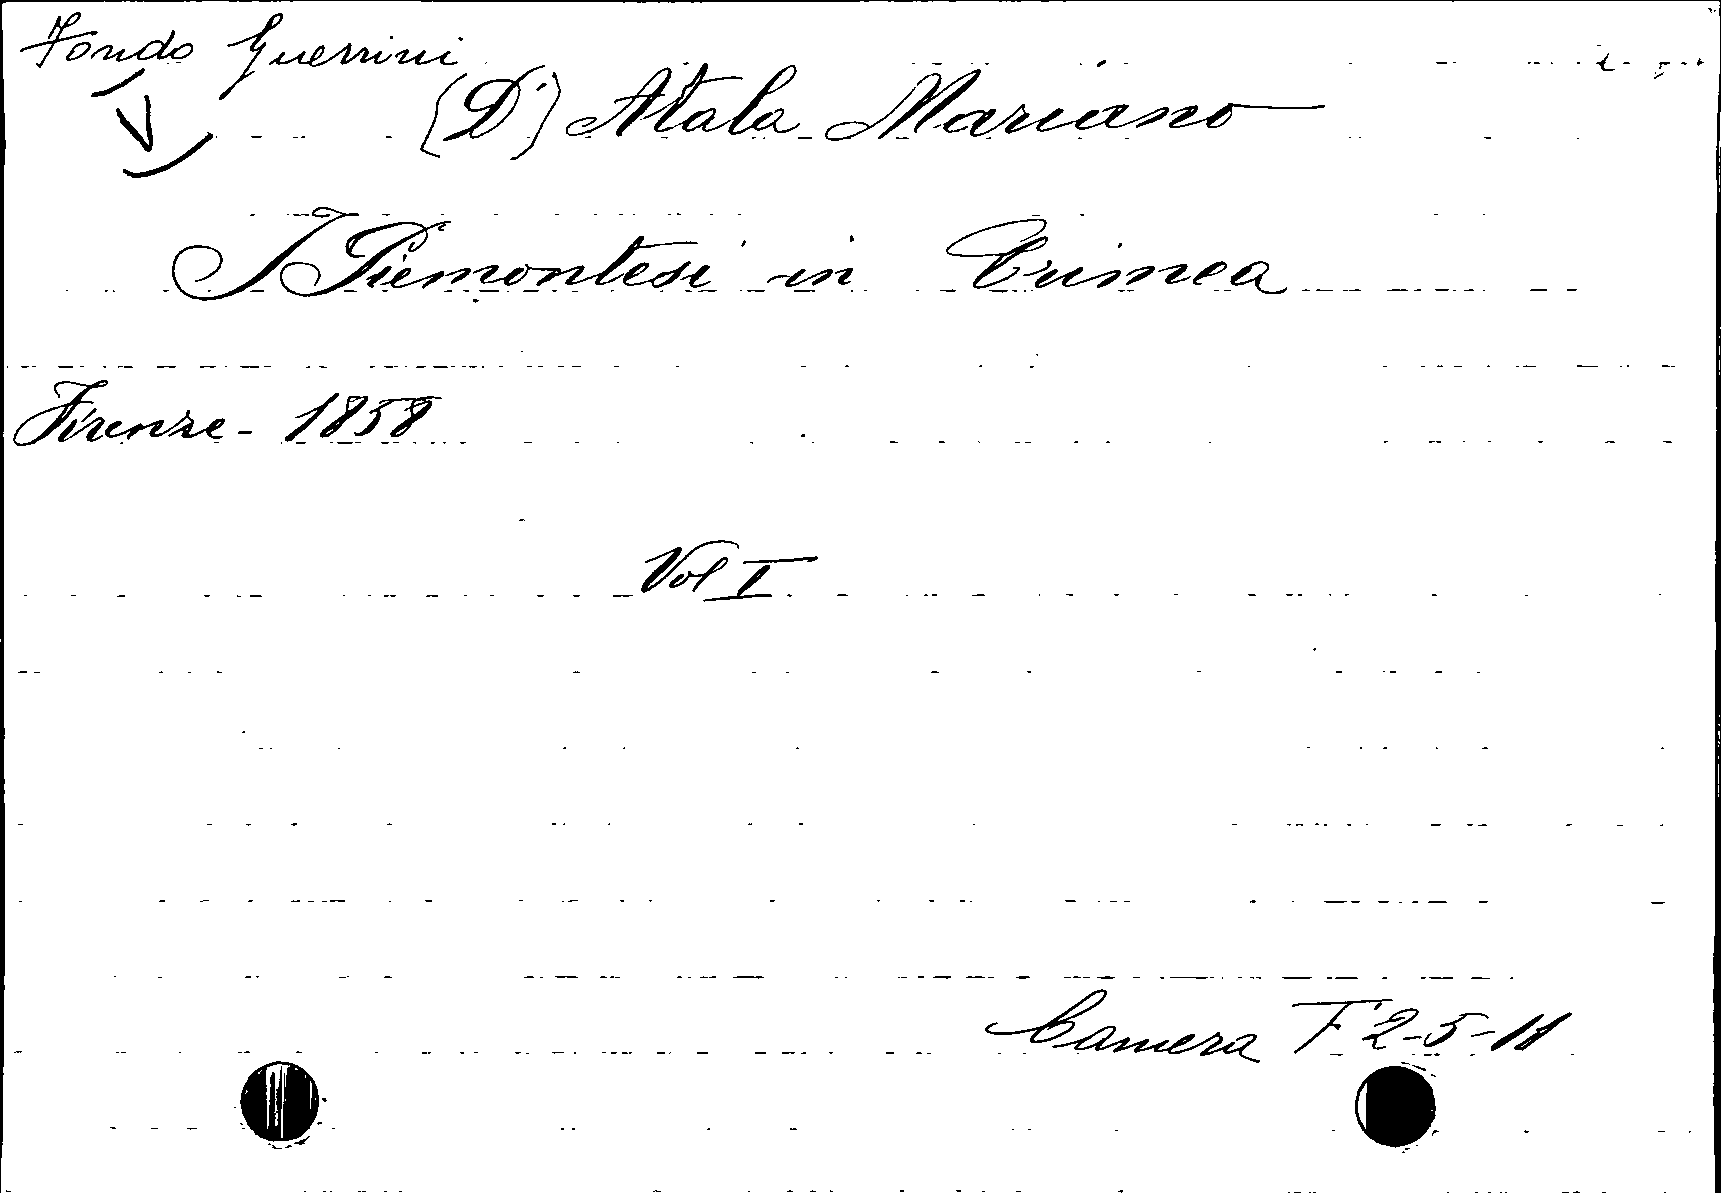 Fondo Guerrini
(D') Atala Mariano
I Piemontesi in Crimea
Firenze - 1858
Vol I
Camera F 2-5-11